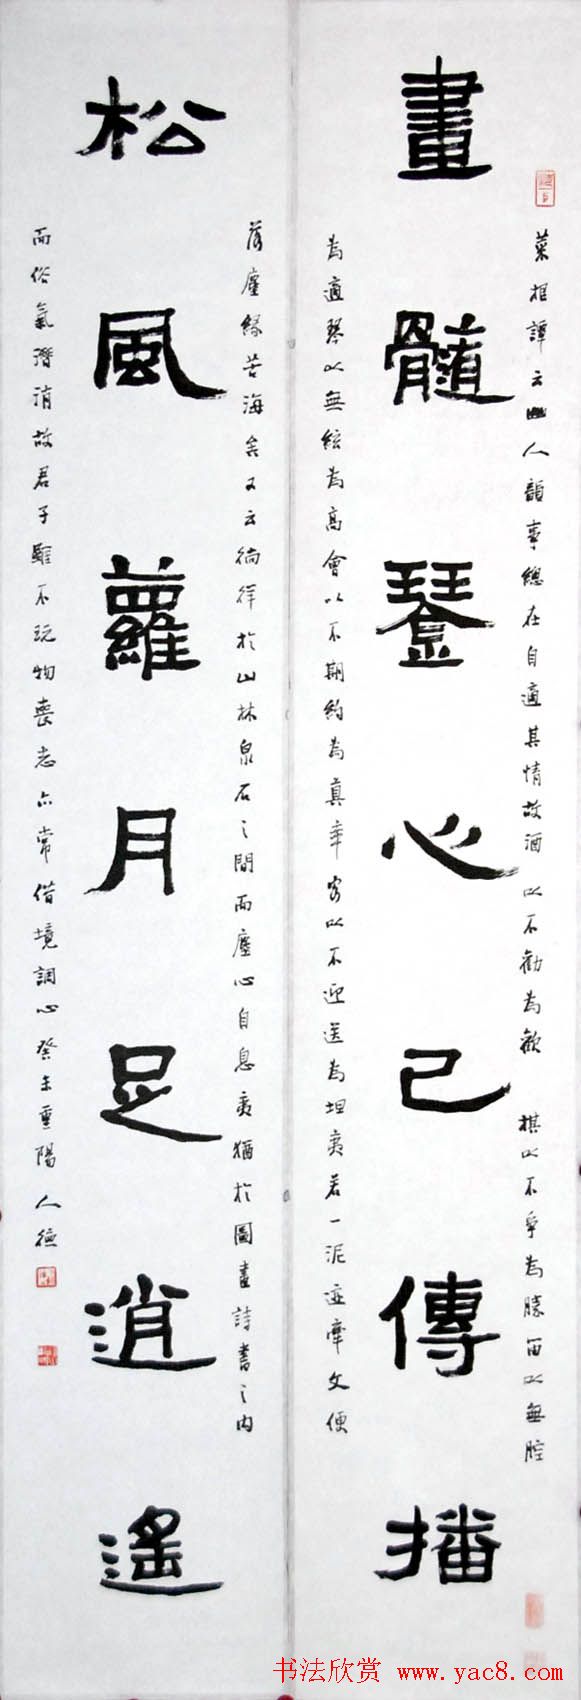 菜根譚云幽人韻事總在自適其情故酒以不勸為歡 棋以不爭為勝笛以無腔
畫髓琴心已傳播
為適琴以無絃為高會以不期約為真率客以不迎送為坦夷若一泥迹牽文便
落塵緣苦海矣又云徜徉於山林泉石之間而塵心自息夷猶於圖畫詩書之內
松風蘿月足逍遙
而俗氣潛消故君子雖不玩物喪志亦常借境調心癸未重陽 人德
书法欣赏 www.yac8.com